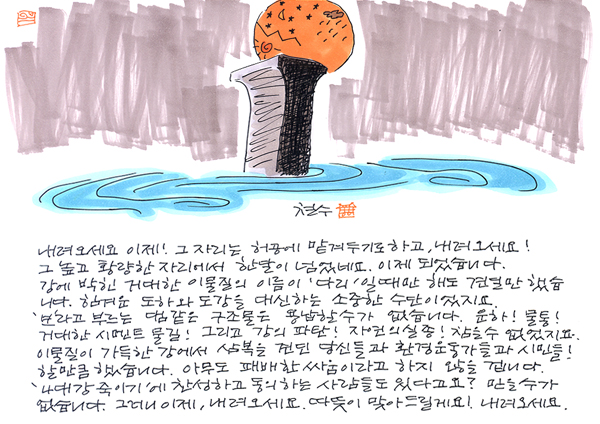 철수
내려오세요 이제! 그 자리는 허공에 맡겨두기로 하고, 내려오세요!
그 높고 황량한 자리에서 한달이 넘었네요. 이제 되었습니다.
강에 박힌 거대한 이물질의 이름이 '다리'일때만 해도 견딜만 했습
니다. 힘겨운 도하와 도강을 대신하는 소중한 수단이었지요.
'보'라고 부르는 댐같은 구조물은 용납할수가 없습니다. 운하! 물통!
거대한 시멘트 물길! 그리고 강의 파탄! 자연의 실종! 참을수 없었지요.
이물질이 가득한 강에서 삼복을 견딘 당신들과 환경운동가들과 시민들!
할만큼 했습니다. 아무도 패배한 싸움이라고 하지 않을 겁니다.
'4대강 죽이기'에 찬성하고 동의하는 사람들도 있다고요? 믿을수가
없습니다. 그러니 이제, 내려오세요. 따뜻이 맞아드릴게요! 내려오세요.